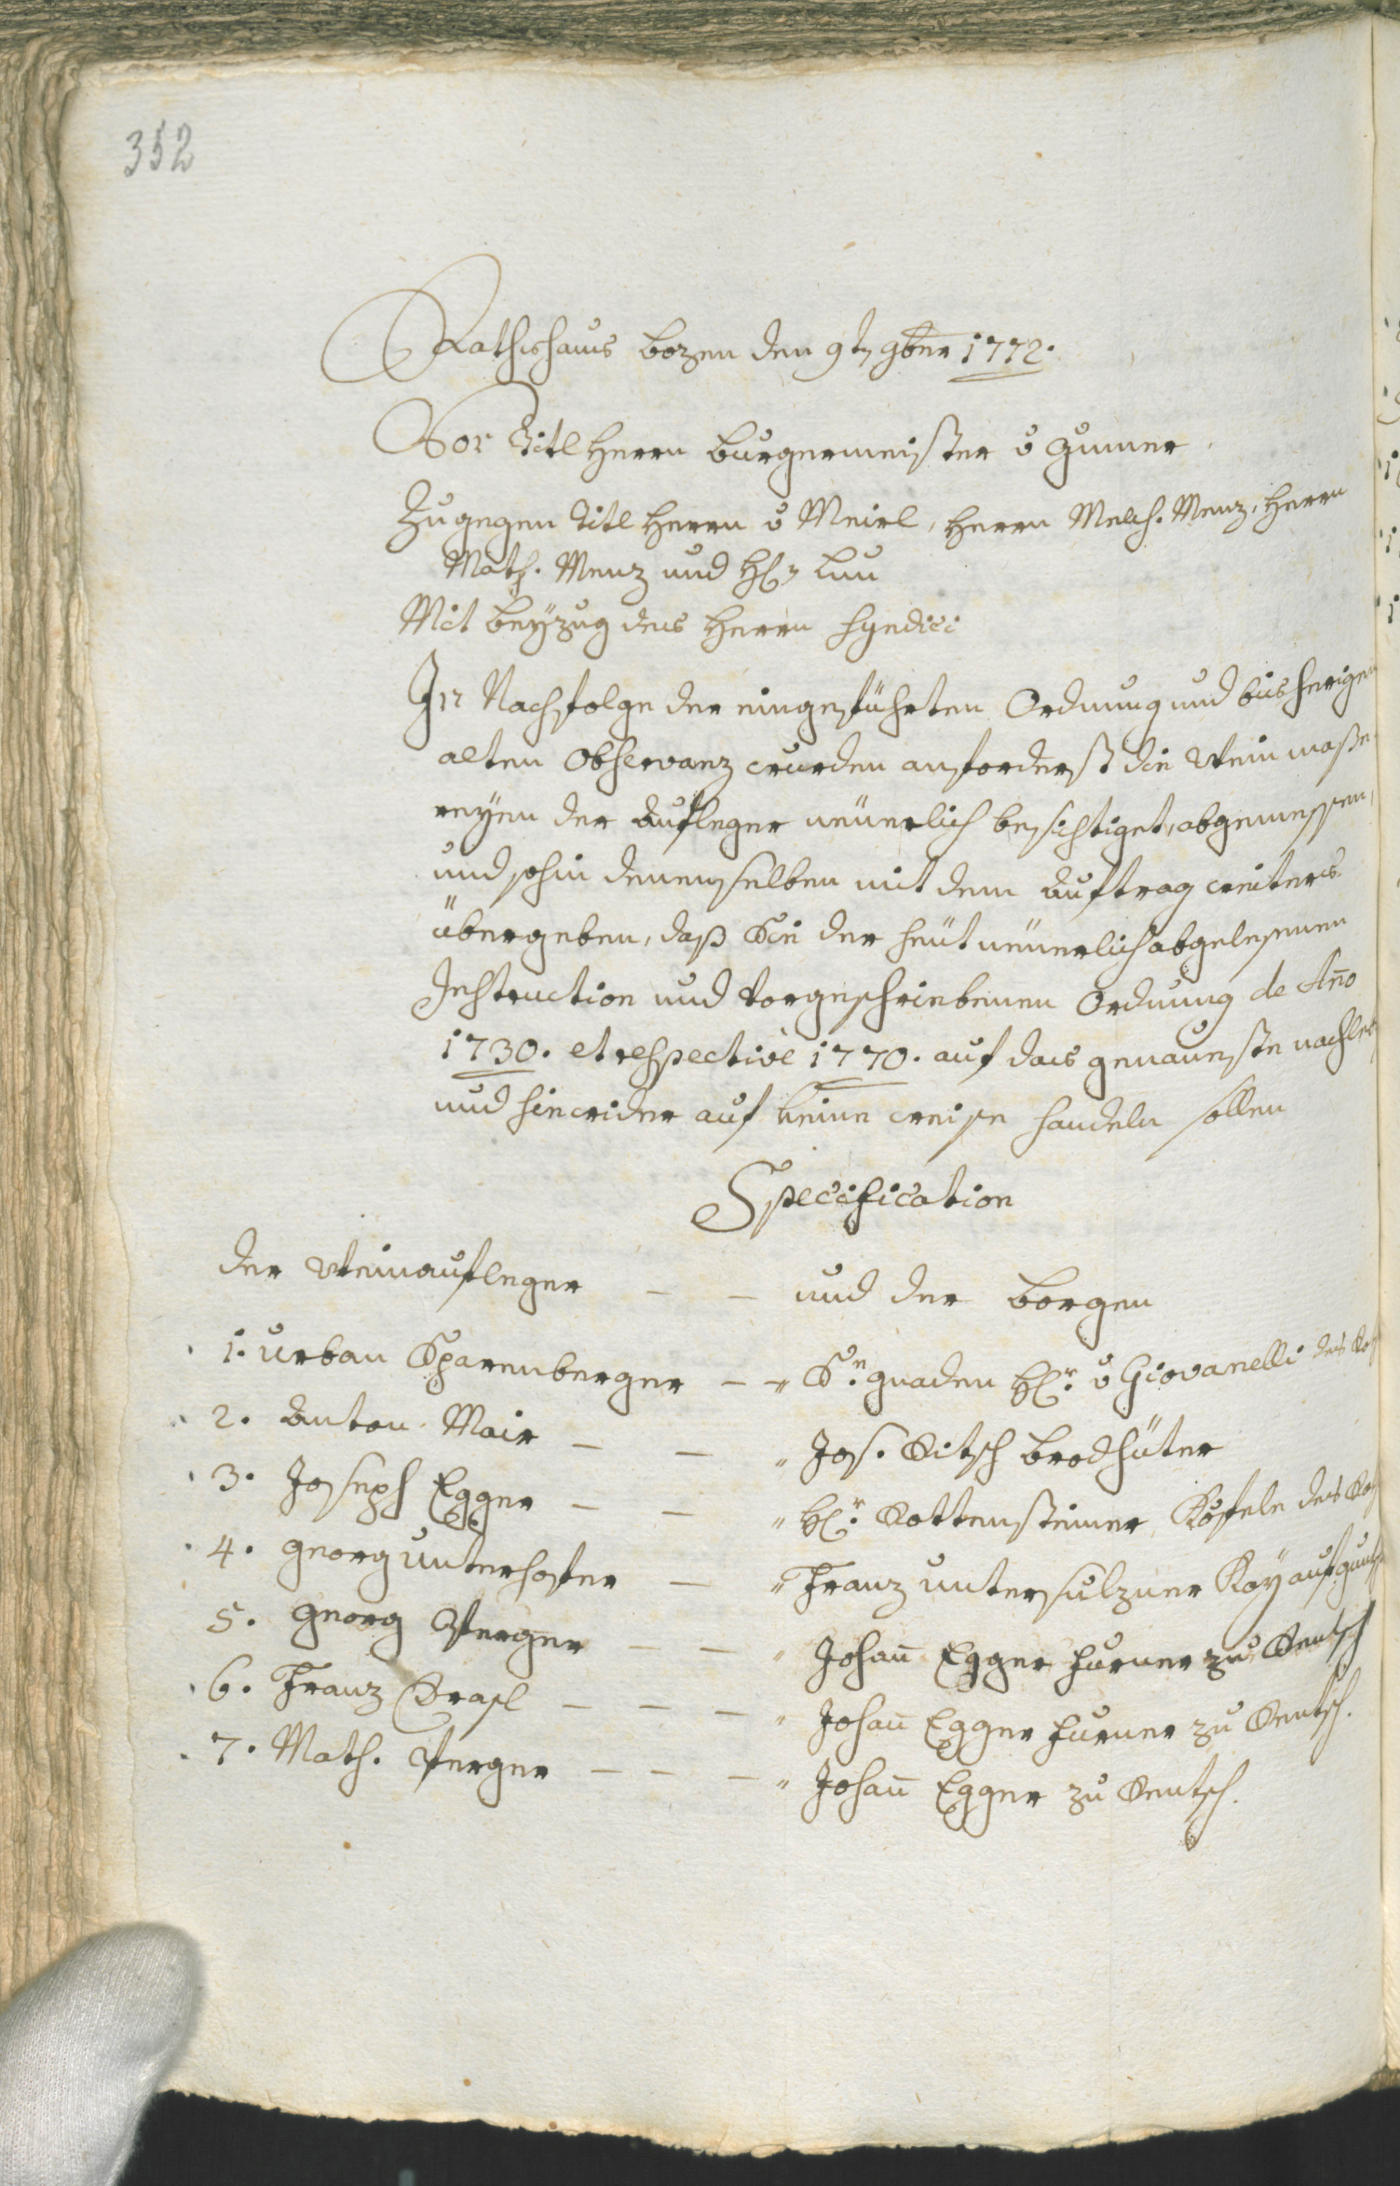 352
Rathshaus Bozen den 9t 9ber 1772.
Vor Titl Herrn Burgermeister v Gumer
Zugegen Titl Herrn v Meirl, Herrn Melch. Menz, Herrn
Math. Menz und Hℓ.
Mit Beÿzug des Herrn Syndici
In Nachfolge der eingeführten Ordnung und bisherigen
alten Observanz wurden anforderst die Wein maße
reÿen der Aufleger neüerlich besichtiget, abgemessen,
und sohin denenselben mit dem Auftrag weiters
übergeben, daß Sie der heüt neüerlich abgelesenen
Instruction und vorgeschriebenen Ordnung de Año
1730. et respectivè 1770. auf das genaueste nachleb
und hinwider auf keine weise handeln sollen
Specification
der Weinaufleger — — und der Borgen
1. Urban Sparnberger — — " Sr. gnaden Hℓr. v Giovanelli des
2. Anton Mair — — " Jos. Ritsch Brodhüter
3. Joseph Egger — — " Hℓr. Rottensteiner Kofele des
4. Georg Unterhofer — " Franz Untersulzner Koÿ auf
5. Georg Perger — — " Johan̄ Egger Furner zu Rentsch
6. Franz Grasl — — — " Johan̄ Egger Furner zu Rentsch.
7. Math. Perger — — — " Johan̄ Egger zu Rentsch.